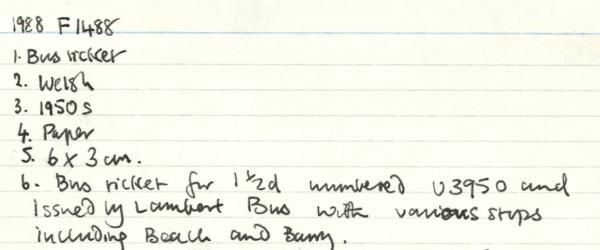 1988 F1488
1. Bus ticket
2. Welsh
3. 1950s
4. Paper
5. 6 x 3 cm.
6. Bus ticket for 1½d numbered U3950 and
issued by Lambert Bus with various stops
including Beach and Barry.